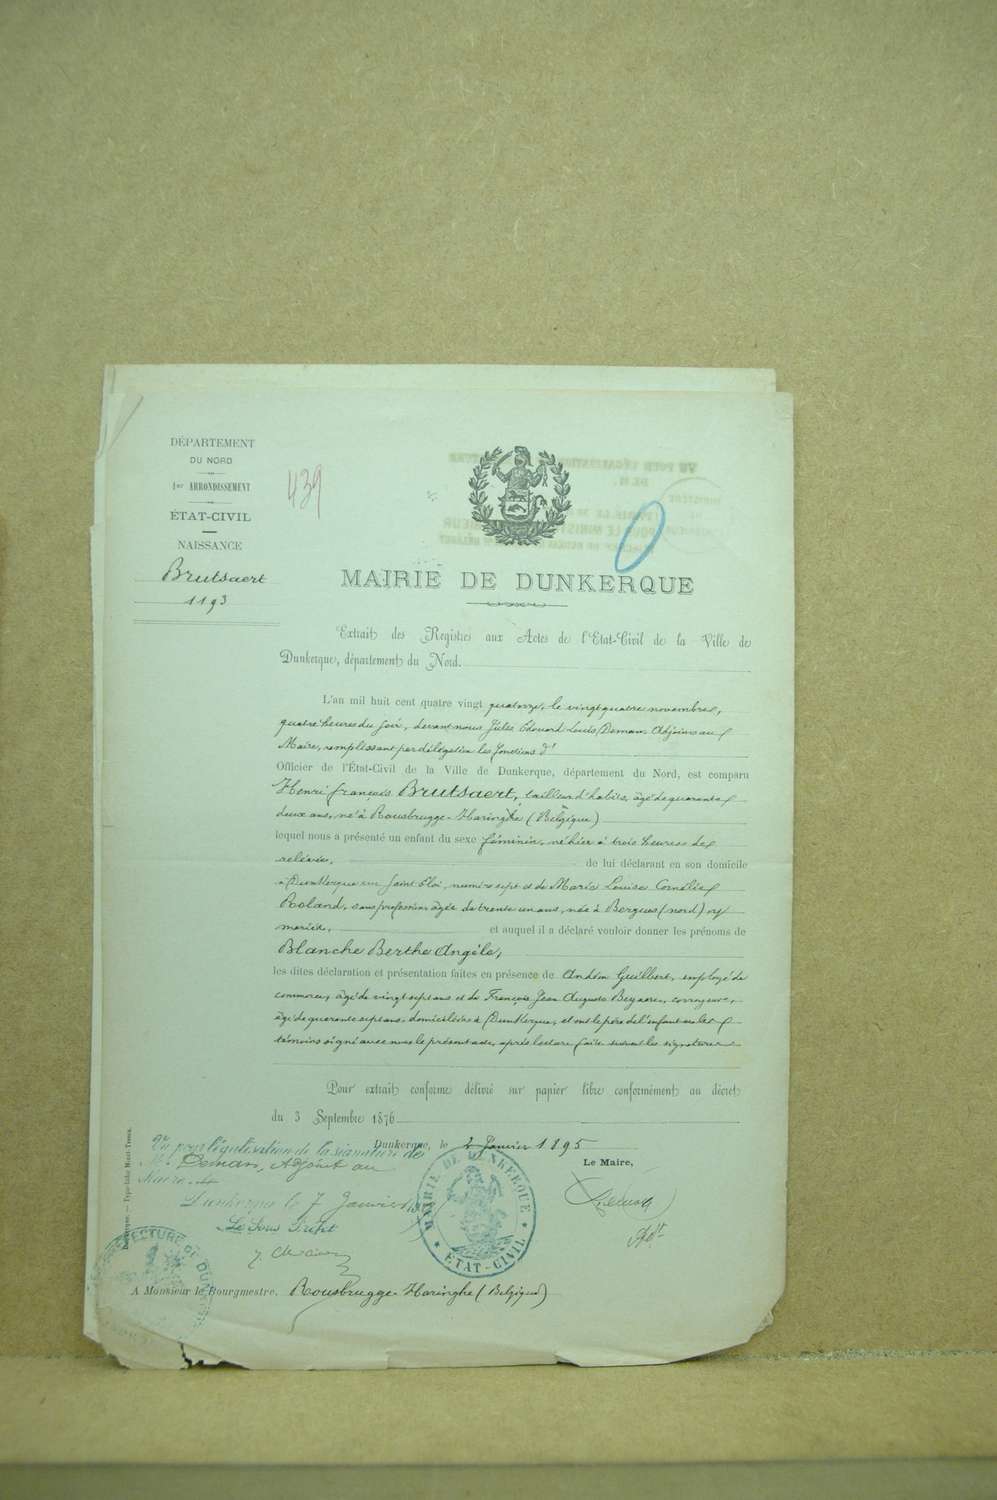 DÉPARTEMENT
DU NORD
1er ARRONDISSEMENT
ÉTAT-CIVIL
NAISSANCE
Brutsaert
1193
439
0
MAIRIE DE DUNKERQUE
Extrait des Registres aux Actes de l'Etat-Civil de la Ville de
Dunkerque, département du Nord.
L'an mil huit cent quatre vingt quatorze, le vingt quatre novembre,
quatre heures du soir, devant nous Jules Edouard Louis Deman Adjoint au
Maire, remplissant par délégation les fonctions d'
Officier de l'État-Civil de la Ville de Dunkerque, département du Nord, est comparu
Henri françois Brutsaert, tailleur d'habits, âgé de quarante
deux ans, né à Rousbrugge-Haringhe (Belgique)
lequel nous a présenté un enfant du sexe féminin, né hier à trois heures de
relevée, de lui déclarant en son domicile
à Dunkerque rue Saint Eloi, numéro sept et de Marie Louise Cornélie
Roland, sans profession âgée de trente un ans, née à Bergues (nord) sa
mariée, et auquel il a déclaré vouloir donner les prénoms de
Blanche Berthe Angèle,
les dites déclaration et présentation faites en présence de Guilbert, employé de
commerce, âgé de vingt sept ans et de François Jean Auguste corroyeur,
âgé de quarante sept ans, domiciliés à Dunkerque, et ont le père de l'enfant et les
témoins signé avec nous le présent acte, après lecture faite suivent les signatures
Pour extrait conforme délivré sur papier libre conformément au décret
du 3 Septembre 1876
Dunkerque, le 2 Janvier 1895
Vu pour légalisation de la signature de
M. Deman, Adjoint au
Maire
Dunkerque le 7 Janvier
Le Sous Préfet
Le Maire,
MAIRIE DE DUNKERQUE
ETAT-CIVIL
A Monsieur le Bourgmestre, Rousbrugge-Haringhe (Belgique)